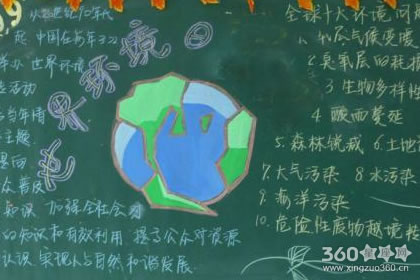 世界环境日
从20世纪70年代
起 中国在每年3
办 世界环境
活动
当年情
主题
众 普及
知识 加强全社会
的知识和有效利用 提高公众对资源
认识 实现人与自然和谐发展
全球十大环境问
1. 气候变
2 臭氧层的耗
3 生物多样性
4 酸雨蔓延
5.森林锐减 6.土地
7.大气污染 8水污染
9.海洋污染
10.危险性废物越境
360
www.xingzuo360.cn